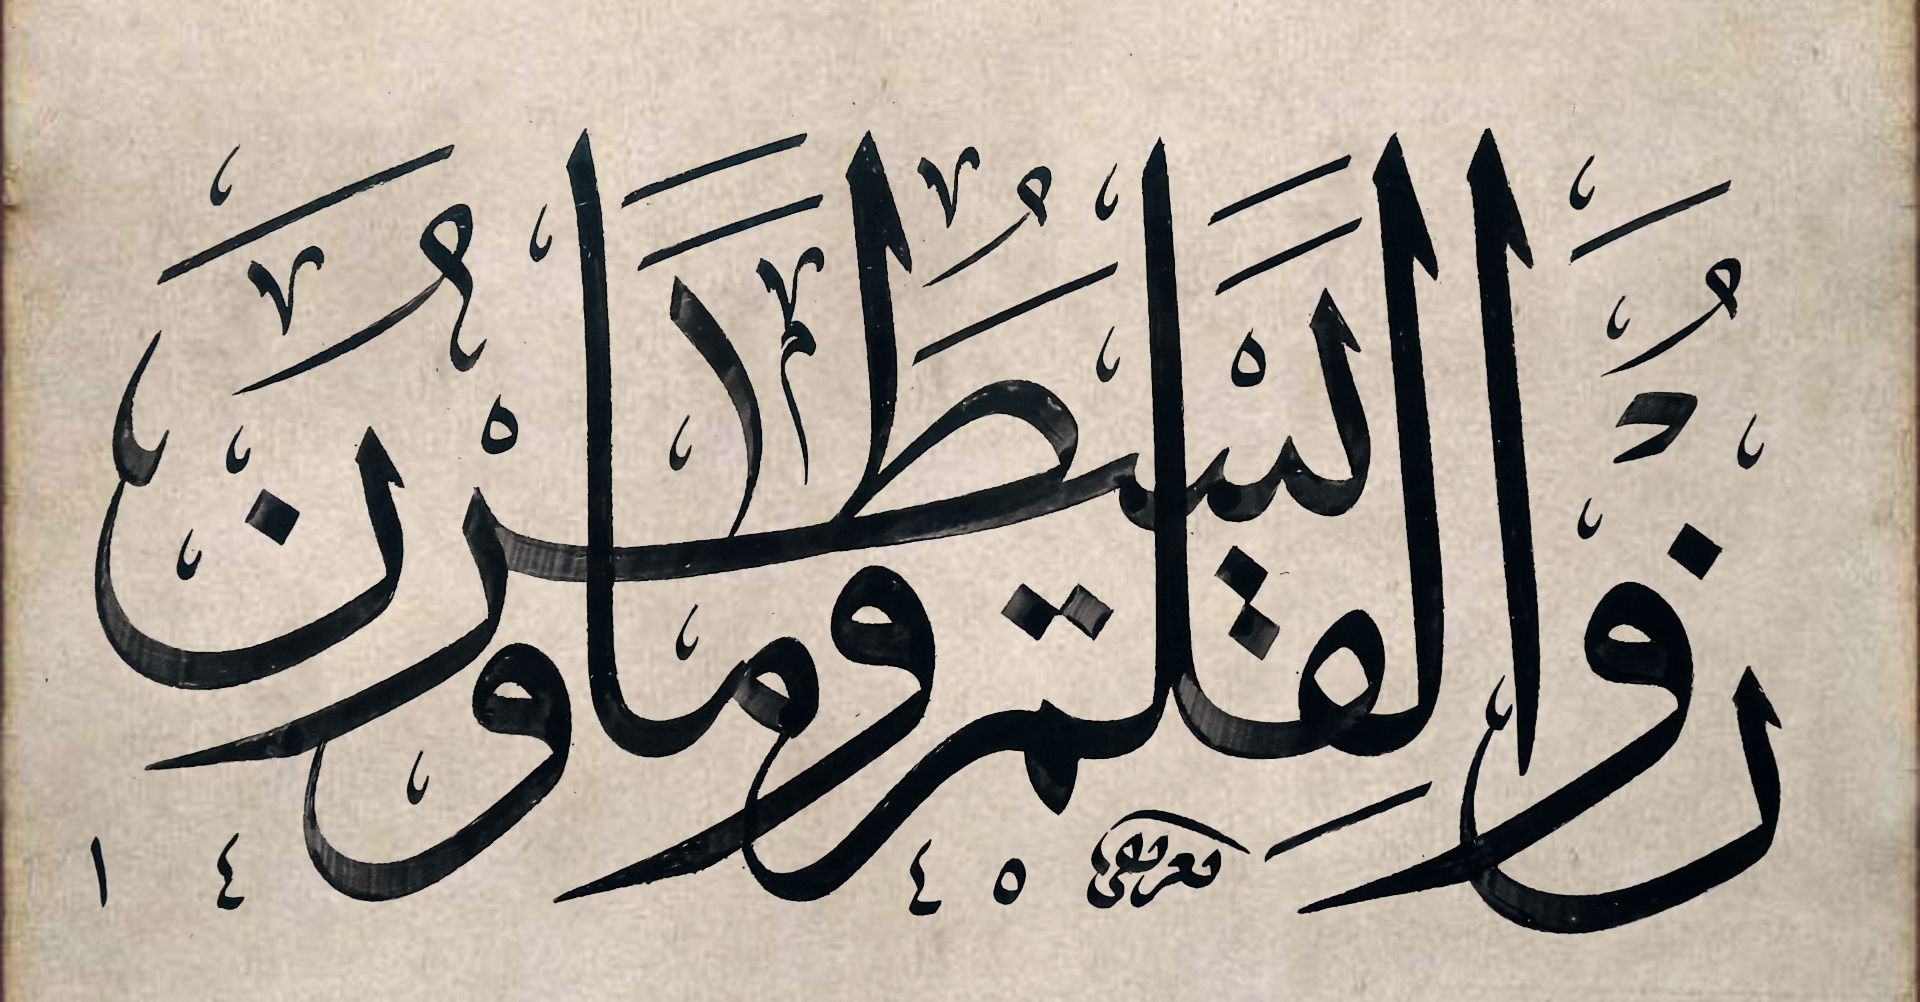 نٓ وَالْقَلَمِ وَمَا يَسْطُرُونَ
١٤٤٥